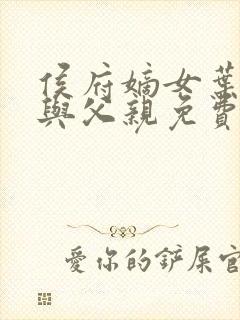 侯府嫡女葉
與父親免費
愛你的鏟屎官